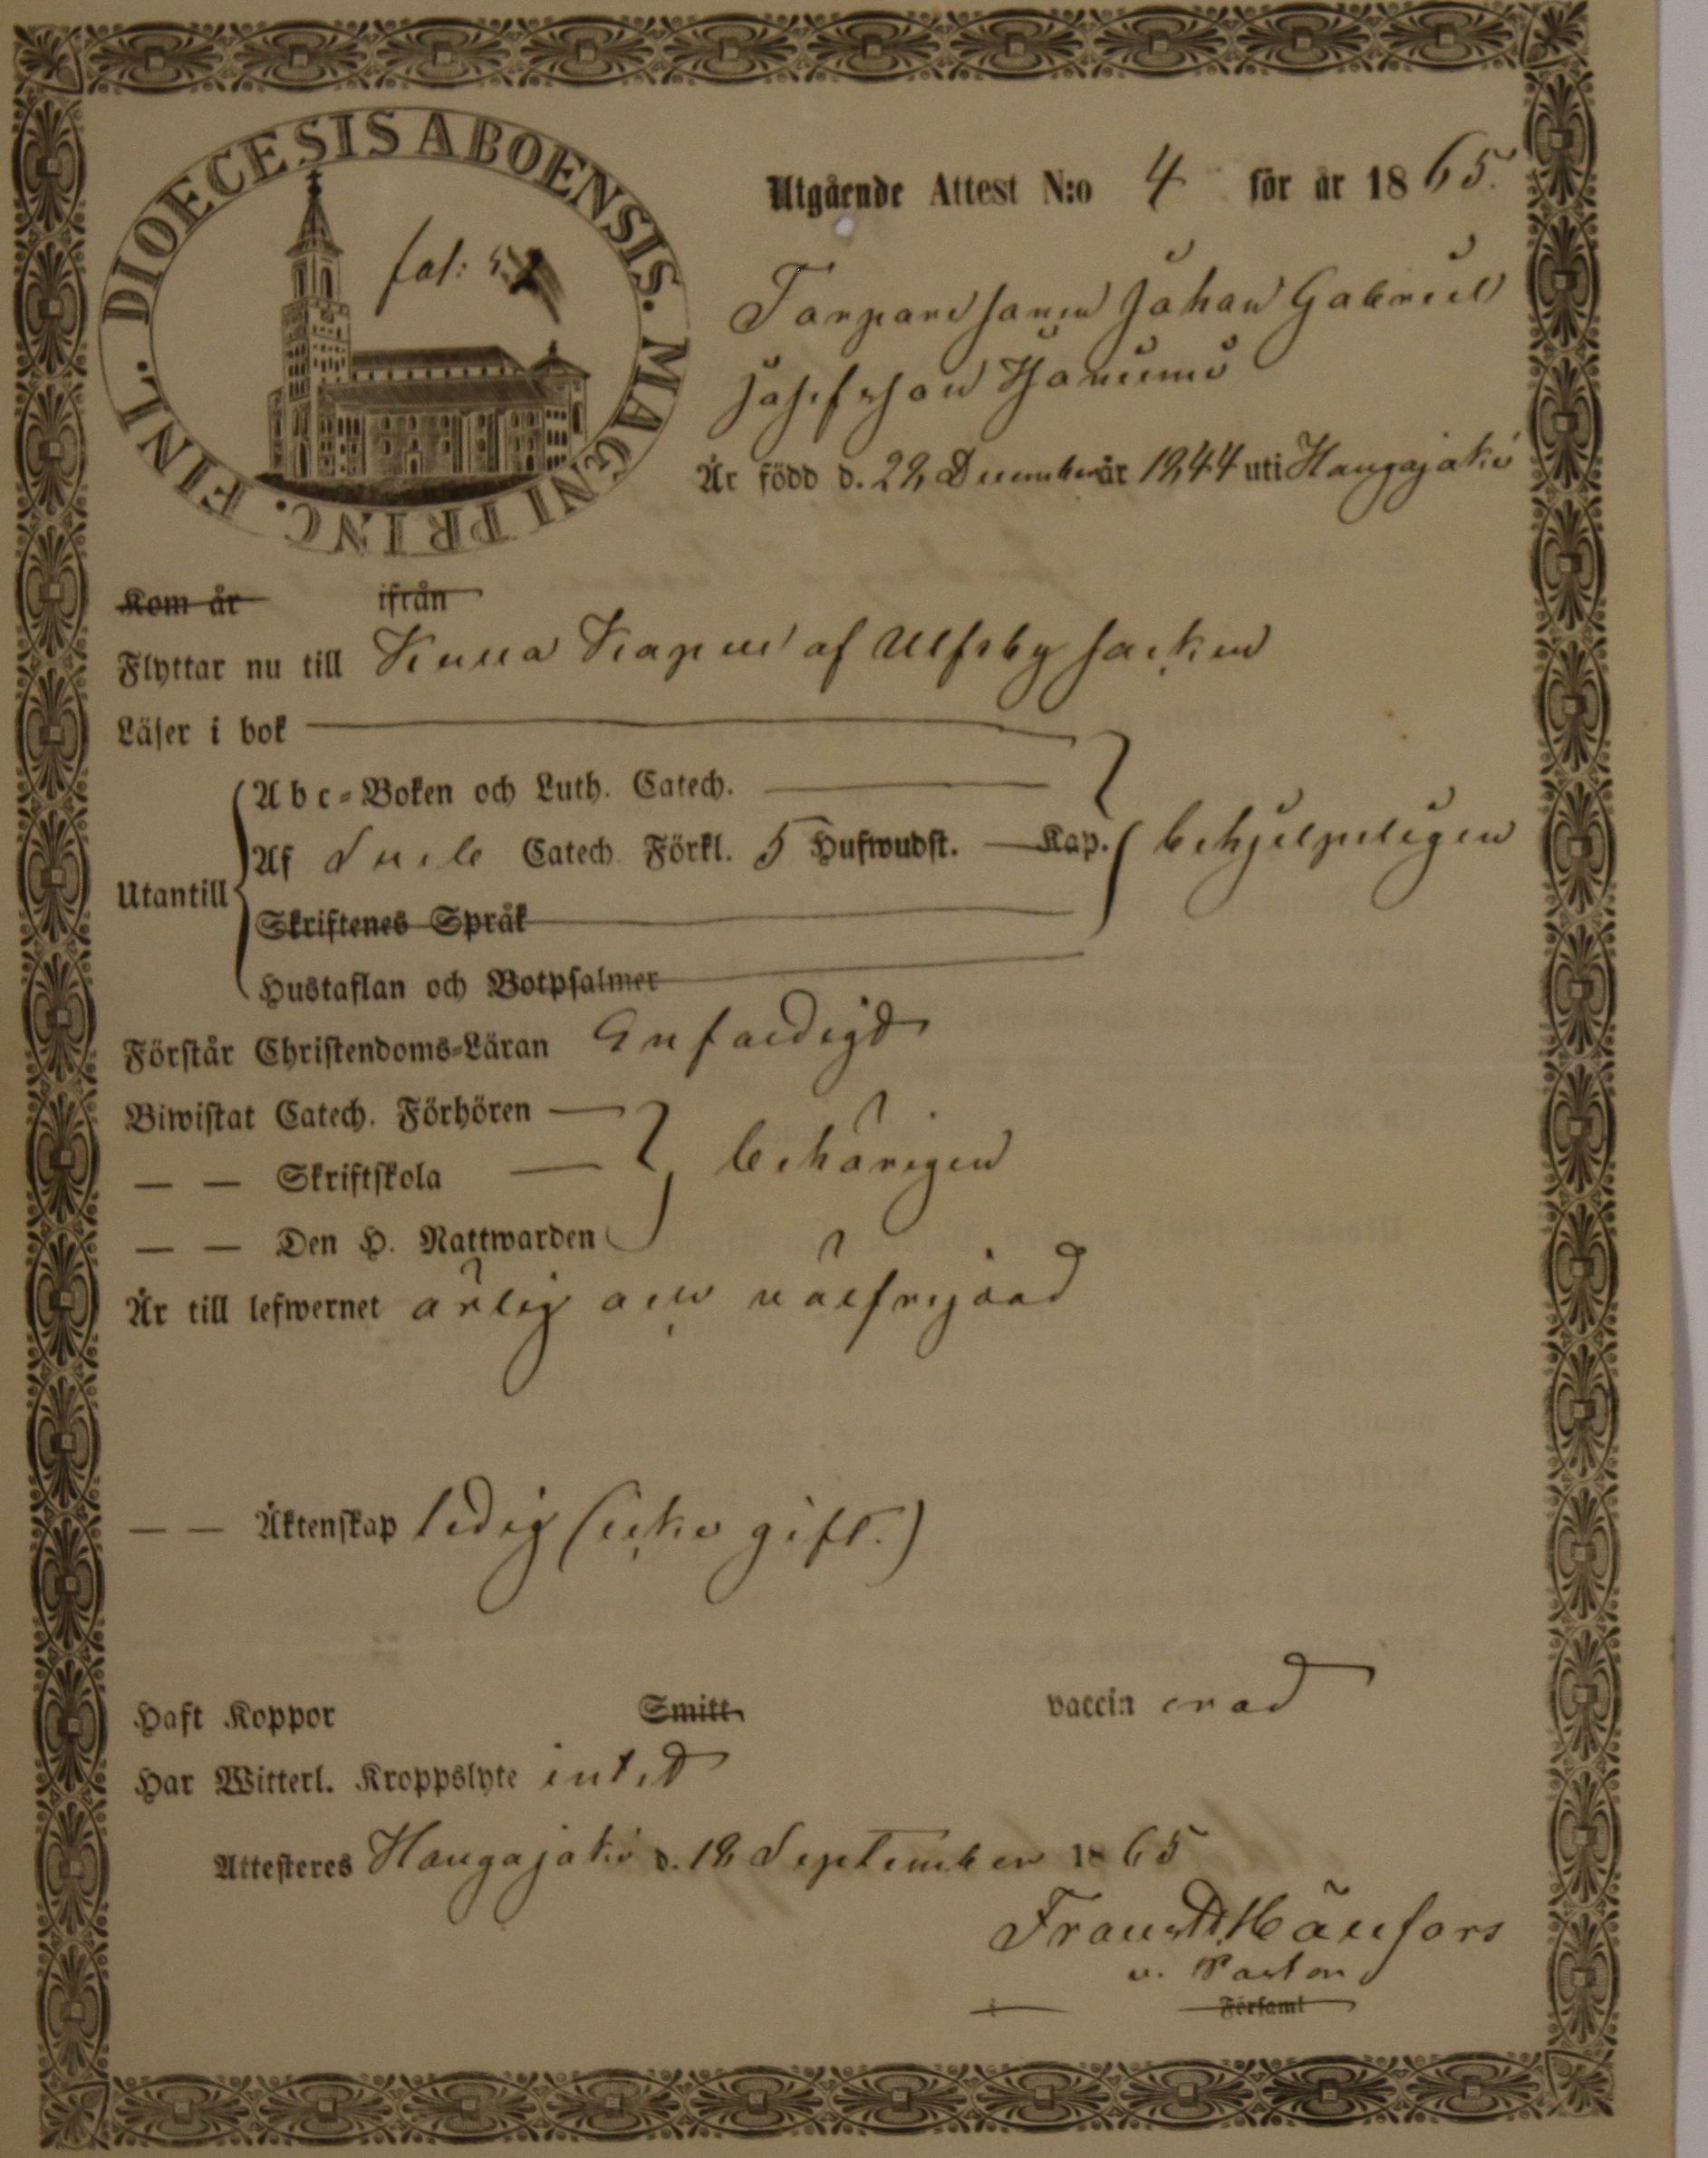 DIOECESIS ABOENSIS. MAGNI PRINC. FINL.
fol: 5
Utgående Attest N:o 4 för år 1865.
Torparesonen Johan Gabriel
Josefsson
Är född d. 28 December år 1844 uti Haugajoki
Kom år ifrån
Flyttar nu till Kumo Kapell af Ulfsby socken
Läser i bok
Abc-Boken och Luth. Catech.
Af Svebe Catech. Förkl. 5 Hufwudst. Kap. behjelpeligen
Utantill
Skriftenes Språk
Hustaflan och Botpsalmer
Förstår Christendoms-Läran Enfaldigt
Biwistat Catech. Förhören
— — Skriftskola behörigen
— — Den H. Nattwarden
Är till lefwernet ärlig och välfrejdad
— — Äktenskap ledig (icke gift.)
Haft Koppor Smitt vaccinerad
Har Witterl. Kroppslyte intet
Attesteres Haugajoki d. 18 September 1865
Frans
v. Pastor
i Församl